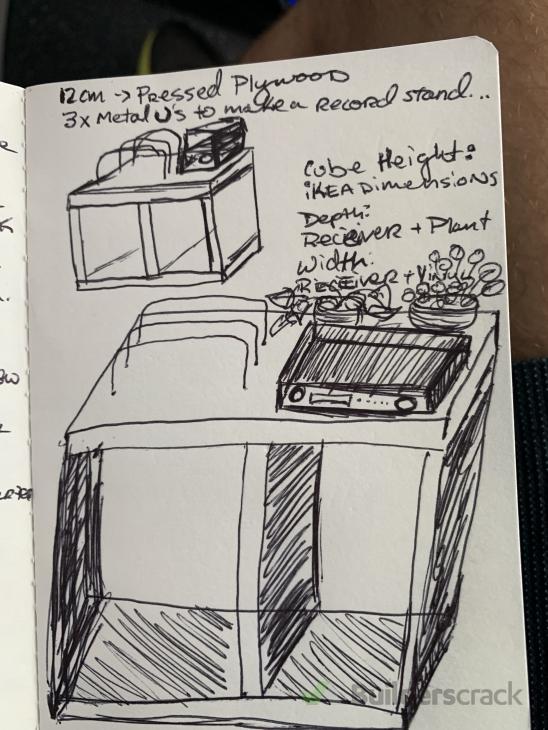 12cm → Pressed Plywood
3x Metal U's to make a record stand...
Cube Height:
IKEA Dimensions
Depth:
Receiver + Plant
Width:
Receiver + Vinyl
Builderscrack